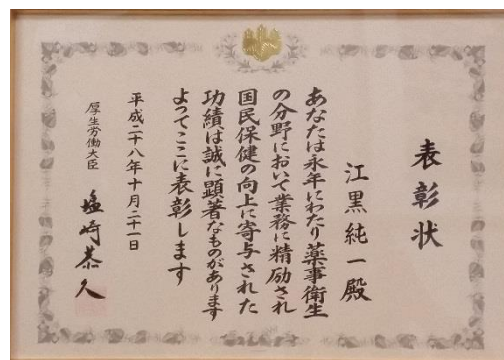 表彰状
江黒純一殿
あなたは永年にわたり薬事衛生
の分野において業務に精励され
国民保健の向上に寄与された
功績は誠に顕著なものがあります
よってここに表彰します
平成二十八年十月二十一日
厚生労働大臣 塩崎恭久